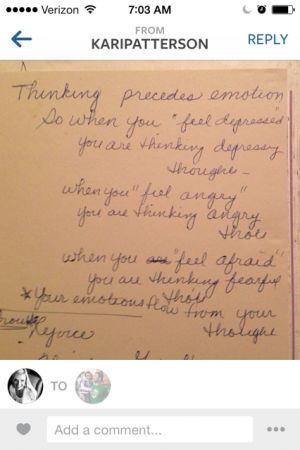 Verizon 7:03 AM
FROM
KARIPATTERSON
REPLY
Thinking precedes emotion
So when you "feel depressed"
you are thinking depressing
thoughts -
when you "feel angry"
you are thinking angry
thots
when you "feel afraid"
you are thinking fearful
thots
* Your emotions flow from your
thought
Rejoice
TO
Add a comment...